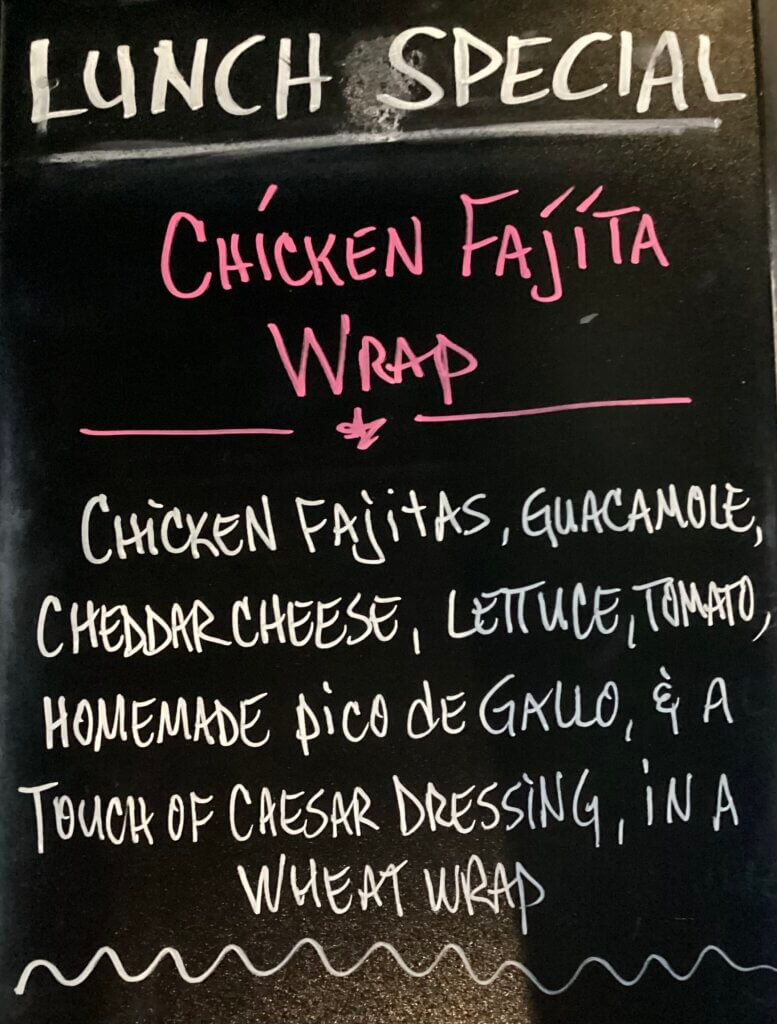 LUNCH SPECIAL
CHiCKEN FAjiTA
WRAP
CHiCKEN FAjitAS, GUACAMOLE,
CHEDDAR CHEESE, LETTUCE, TOMATO,
HOMEMADE pico de GALLO, & A
TOUCH OF CAESAR DRESSiNG, iN A
WHEAT WRAP